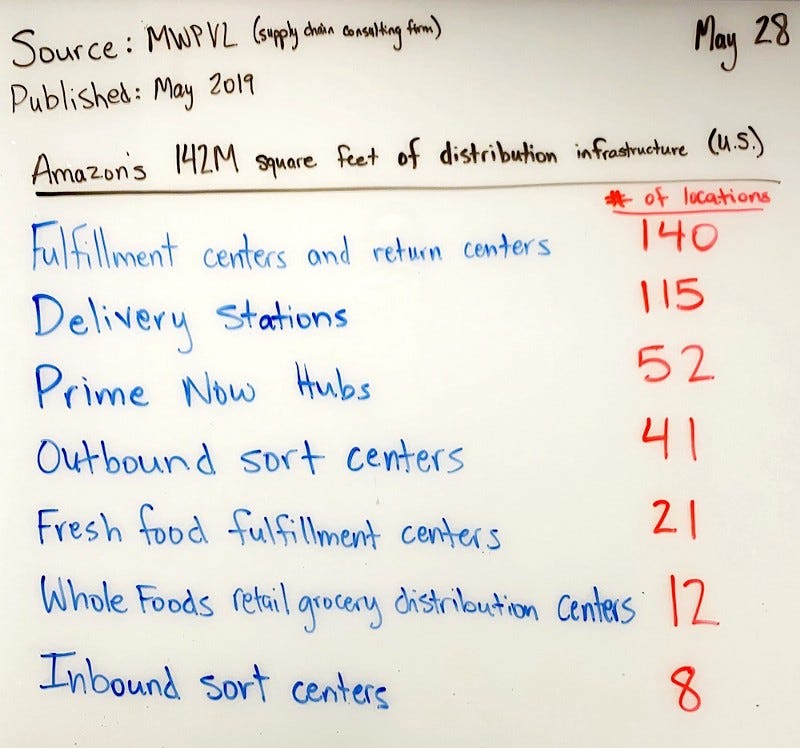 Source: MWPVL (supply chain consulting firm)
May 28
Published: May 2019
Amazon's 142M square feet of distribution infrastructure (U.S.)
# of locations
Fulfillment centers and return centers 140
Delivery Stations 115
Prime Now Hubs 52
Outbound sort centers 41
Fresh food fulfillment centers 21
Whole Foods retail grocery distribution centers 12
Inbound sort centers 8